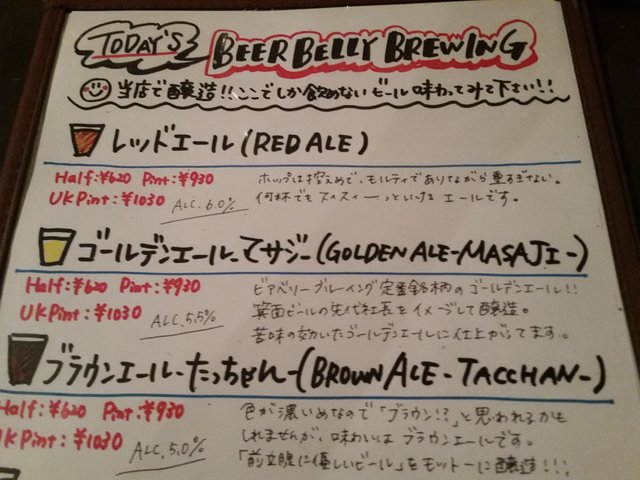 TODAY'S BEER BELLY BREWING
当店で醸造!!ここでしか飲めないビール味わってみて下さい!!
レッドエール(RED ALE)
Half:¥620 Pint:¥930
UK Pint:¥1030
ALC.6.0%
ホップは控えめで、モルティでありながら重すぎない。
何杯でもスイスイーっといけるエールです。
ゴールデンエール-マサジ-(GOLDEN ALE-MASAJI-)
Half:¥620 Pint:¥930
UK Pint:¥1030
ALC.5.5%
ビアベリーブルーイング定番銘柄のゴールデンエール!!
箕面ビールの先代社長をイメージして醸造。
苦味の効いたゴールデンエールに仕上がってます。
ブラウンエール-たっちゃん-(BROWN ALE-TACCHAN-)
Half:¥620 Pint:¥930
UK Pint:¥1030
ALC.5.0%
色が濃いめなので「ブラウン!?」と思われるかも
しれませんが、味わいはブラウンエールです。
「前立腺に優しいビール」をモットーに醸造!!!